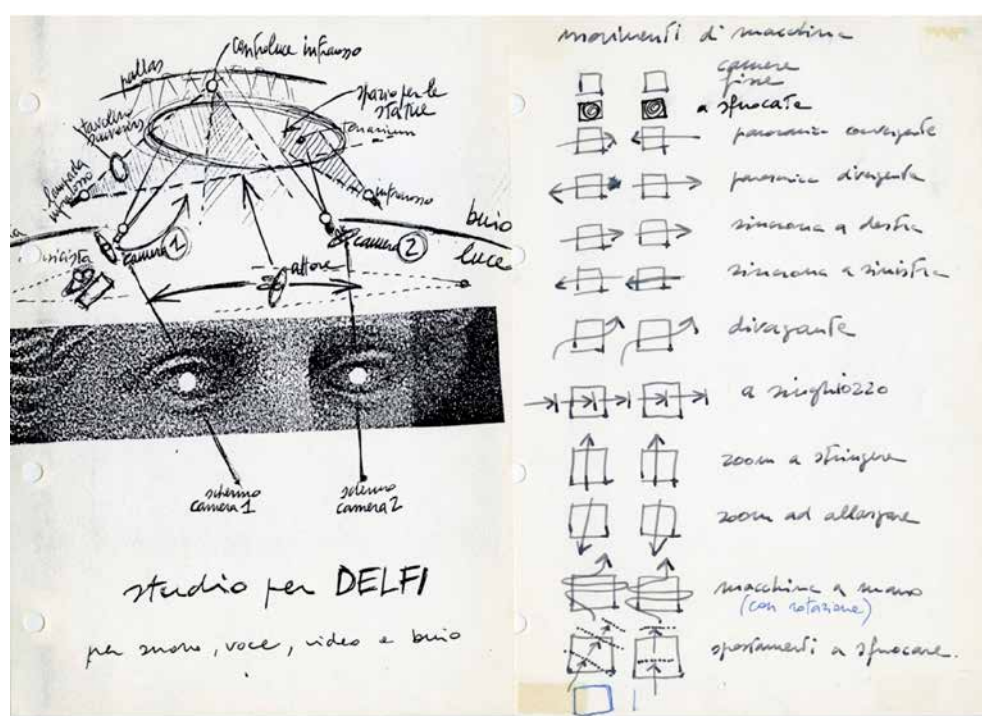 controluce infrarosso
pallas
spazio per le
statue
tenarium
tavolino
lampada
infrarosso
infrarosso
buio
luce
camera 1
camera 2
attore
schermo
camera 1
schermo
camera 2
studio per DELFI
per suono, voce, video e buio
movimenti di macchina
camere
fisse
a sfuocate
panoramica convergente
panoramica divergente
sincrona a destra
sincrona a sinistra
divagante
a singhiozzo
zoom a stringere
zoom ad allargare
macchina a mano
(con rotazione)
spostamenti a sfuocare.